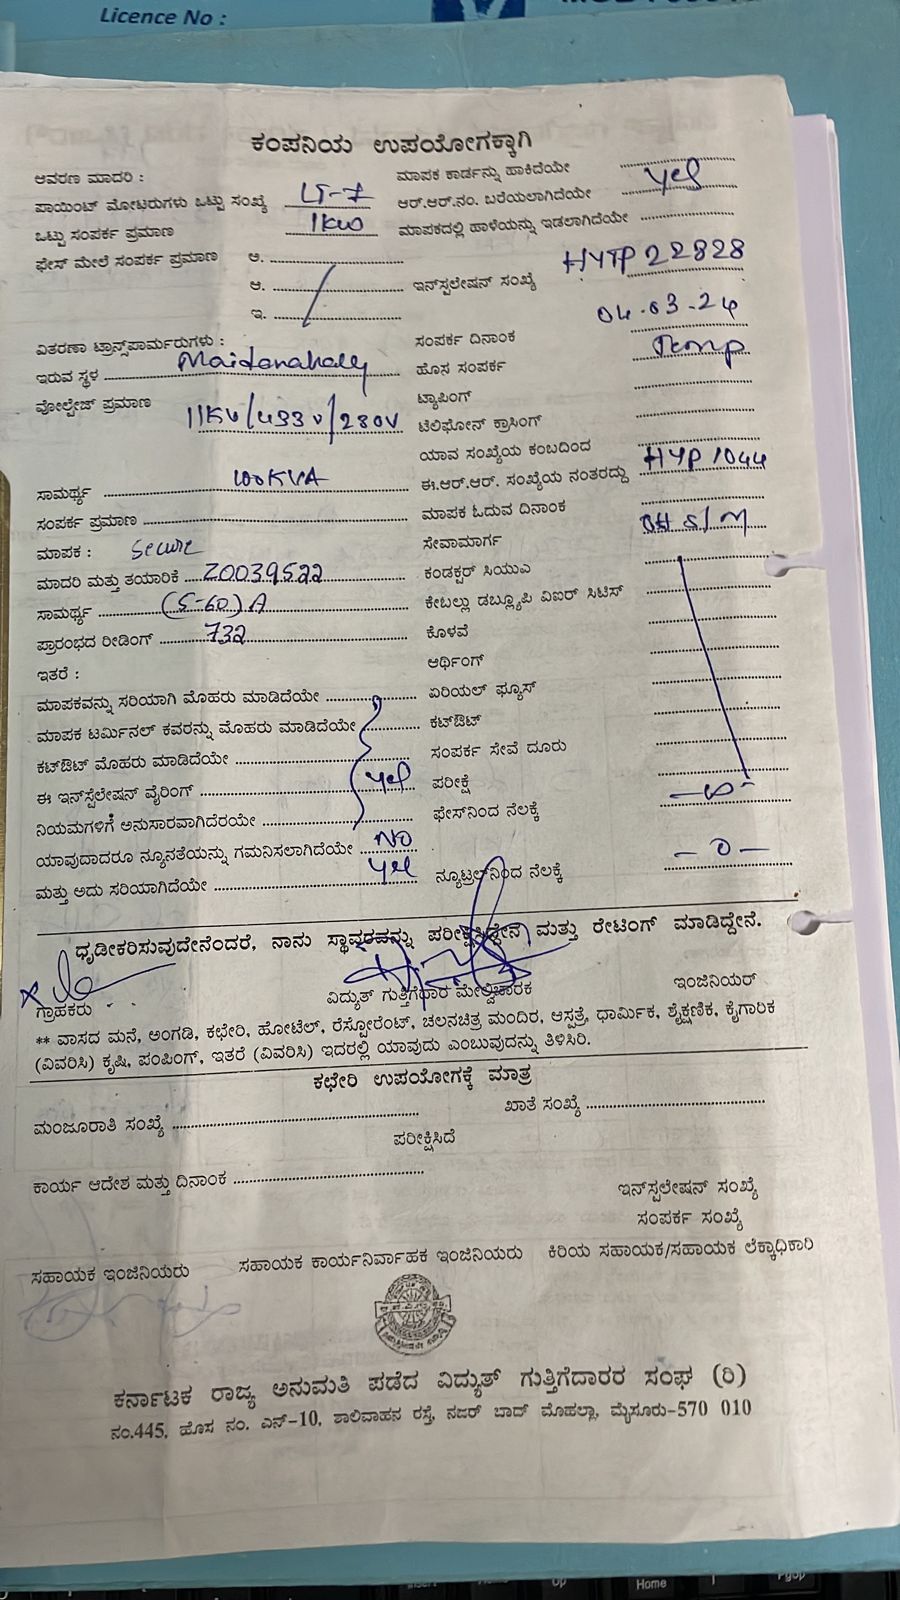 Licence No :
ಕಂಪನಿಯ ಉಪಯೋಗಕ್ಕಾಗಿ
ಆವರಣ ಮಾದರಿ : ಮಾಪಕ ಕಾರ್ಡನ್ನು ಹಾಕಿದೆಯೇ
ಪಾಯಿಂಟ್ ಮೋಟರುಗಳು ಒಟ್ಟು ಸಂಖ್ಯೆ LT-7 ಆರ್.ಆರ್.ನಂ. ಬರೆಯಲಾಗಿದೆಯೇ Yes
ಒಟ್ಟು ಸಂಪರ್ಕ ಪ್ರಮಾಣ 1KW ಮಾಪಕದಲ್ಲಿ ಹಾಳೆಯನ್ನು ಇಡಲಾಗಿದೆಯೇ
ಫೇಸ್ ಮೇಲೆ ಸಂಪರ್ಕ ಪ್ರಮಾಣ ಅ.
ಆ. ಇನ್‌ಸ್ಪಲೇಷನ್ ಸಂಖ್ಯೆ HYTP 22828
ಇ.
ವಿತರಣಾ ಟ್ರಾನ್ಸ್‌ಪಾರ್ಮರುಗಳು : ಸಂಪರ್ಕ ದಿನಾಂಕ 04-03-24
ಇರುವ ಸ್ಥಳ Maidanahally ಹೊಸ ಸಂಪರ್ಕ Temp
ವೋಲ್ಟೇಜ್ ಪ್ರಮಾಣ 11KV/433V/230V ಟ್ಯಾಪಿಂಗ್
ಟೆಲಿಫೋನ್ ಕ್ರಾಸಿಂಗ್
ಯಾವ ಸಂಖ್ಯೆಯ ಕಂಬದಿಂದ
ಸಾಮರ್ಥ್ಯ 100KVA ಈ.ಆರ್.ಆರ್. ಸಂಖ್ಯೆಯ ನಂತರದ್ದು HYP 1044
ಸಂಪರ್ಕ ಪ್ರಮಾಣ ಮಾಪಕ ಓದುವ ದಿನಾಂಕ
ಮಾಪಕ : Secure ಸೇವಾಮಾರ್ಗ OH S/M
ಮಾದರಿ ಮತ್ತು ತಯಾರಿಕೆ Z0039522 ಕಂಡಕ್ಟರ್ ಸಿಯುಎ
ಸಾಮರ್ಥ್ಯ (5-60) A ಕೇಬಲ್ಲು ಡಬ್ಲ್ಯೂಪಿ ವಿಐರ್ ಸಿಟಿಸ್
ಪ್ರಾರಂಭದ ರೀಡಿಂಗ್ 732 ಕೊಳವೆ
ಇತರೆ : ಆರ್ಥಿಂಗ್
ಮಾಪಕವನ್ನು ಸರಿಯಾಗಿ ಮೊಹರು ಮಾಡಿದೆಯೇ ಏರಿಯಲ್ ಫ್ಯೂಸ್
ಮಾಪಕ ಟರ್ಮಿನಲ್ ಕವರನ್ನು ಮೊಹರು ಮಾಡಿದೆಯೇ ಕಟ್‌ಔಟ್
ಕಟ್‌ಔಟ್ ಮೊಹರು ಮಾಡಿದೆಯೇ ಸಂಪರ್ಕ ಸೇವೆ ದೂರು
ಈ ಇನ್‌ಸ್ಪೆಲೇಷನ್ ವೈರಿಂಗ್ Yes ಪರೀಕ್ಷೆ
ನಿಯಮಗಳಿಗೆ ಅನುಸಾರವಾಗಿದೆರಯೇ ಫೇಸ್‌ನಿಂದ ನೆಲಕ್ಕೆ -∞-
ಯಾವುದಾದರೂ ನ್ಯೂನತೆಯನ್ನು ಗಮನಿಸಲಾಗಿದೆಯೇ NO
ಮತ್ತು ಅದು ಸರಿಯಾಗಿದೆಯೇ Yes ನ್ಯೂಟ್ರಲ್‌ನಿಂದ ನೆಲಕ್ಕೆ - 0 -
ಧೃಡೀಕರಿಸುವುದೇನೆಂದರೆ, ನಾನು ಸ್ಥಾವರವನ್ನು ಪರೀಕ್ಷಿಸಿದ್ದೇನೆ ಮತ್ತು ರೇಟಿಂಗ್ ಮಾಡಿದ್ದೇನೆ.
ಗ್ರಾಹಕರು ವಿದ್ಯುತ್ ಗುತ್ತಿಗೆದಾರ ಮೇಲ್ವಿಚಾರಕ ಇಂಜಿನಿಯರ್
** ವಾಸದ ಮನೆ, ಅಂಗಡಿ, ಕಛೇರಿ, ಹೋಟೆಲ್, ರೆಸ್ಟೋರೆಂಟ್, ಚಲನಚಿತ್ರ ಮಂದಿರ, ಆಸ್ಪತ್ರೆ, ಧಾರ್ಮಿಕ, ಶೈಕ್ಷಣಿಕ, ಕೈಗಾರಿಕ
(ವಿವರಿಸಿ) ಕೃಷಿ, ಪಂಪಿಂಗ್, ಇತರೆ (ವಿವರಿಸಿ) ಇದರಲ್ಲಿ ಯಾವುದು ಎಂಬುವುದನ್ನು ತಿಳಿಸಿರಿ.
ಕಛೇರಿ ಉಪಯೋಗಕ್ಕೆ ಮಾತ್ರ
ಮಂಜೂರಾತಿ ಸಂಖ್ಯೆ ಖಾತೆ ಸಂಖ್ಯೆ
ಪರೀಕ್ಷಿಸಿದೆ
ಕಾರ್ಯ ಆದೇಶ ಮತ್ತು ದಿನಾಂಕ
ಇನ್‌ಸ್ಪಲೇಷನ್ ಸಂಖ್ಯೆ
ಸಂಪರ್ಕ ಸಂಖ್ಯೆ
ಸಹಾಯಕ ಇಂಜಿನಿಯರು ಸಹಾಯಕ ಕಾರ್ಯನಿರ್ವಾಹಕ ಇಂಜಿನಿಯರು ಕಿರಿಯ ಸಹಾಯಕ/ಸಹಾಯಕ ಲೆಕ್ಕಾಧಿಕಾರಿ
ಕರ್ನಾಟಕ ರಾಜ್ಯ ಅನುಮತಿ ಪಡೆದ ವಿದ್ಯುತ್ ಗುತ್ತಿಗೆದಾರರ ಸಂಘ (ರಿ)
ನಂ.445, ಹೊಸ ನಂ. ಎನ್-10, ಶಾಲಿವಾಹನ ರಸ್ತೆ, ನಜರ್ ಬಾದ್ ಮೊಹಲ್ಲಾ, ಮೈಸೂರು-570 010
Home
PgUp